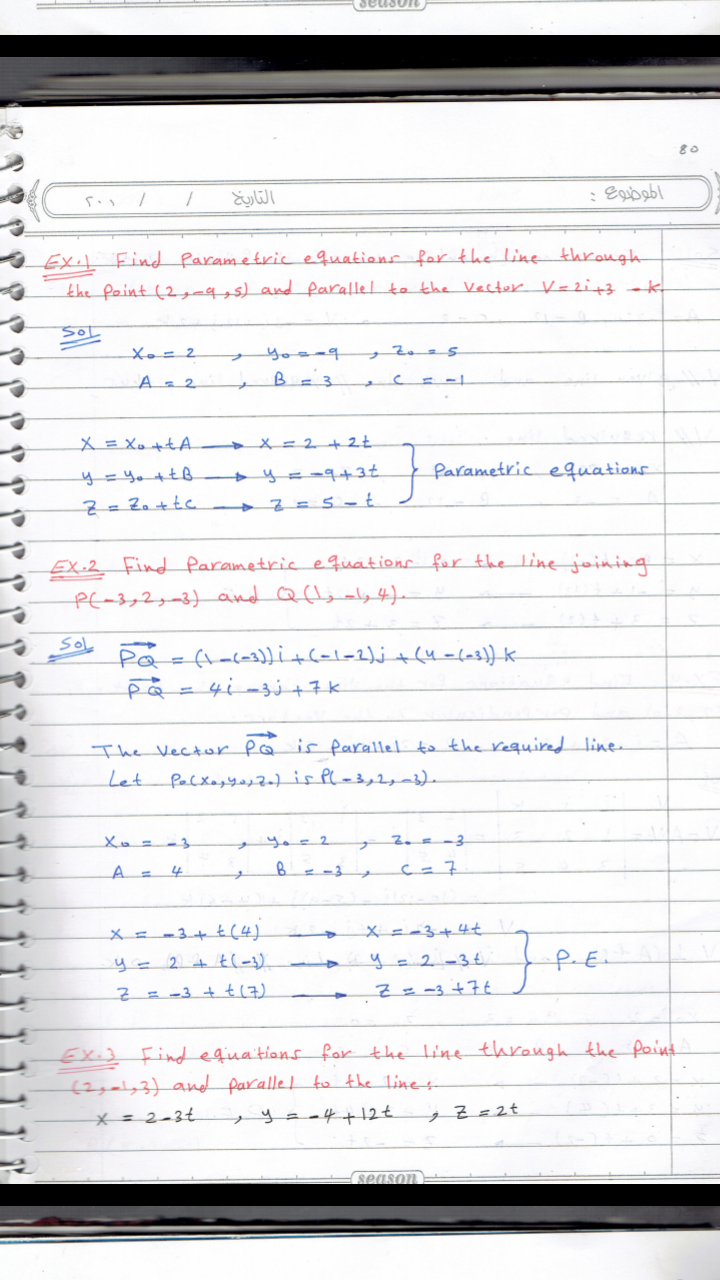 season
80
الموضوع :
التاريخ / / ٢٠٠١
EX.1 Find Parametric equations for the line through
the Point (2, -9, 5) and Parallel to the vector V = 2i + 3 - k.
Sol
x₀ = 2 , y₀ = -9 , z₀ = 5
A = 2 , B = 3 , C = -1
x = x₀ + tA → x = 2 + 2t
y = y₀ + tB → y = -9 + 3t
z = z₀ + tC → z = 5 - t
} Parametric equations
EX.2 Find Parametric equations for the line joining
P(-3, 2, -3) and Q(1, -1, 4).
Sol
PQ = (1 - (-3))i + (-1 - 2)j + (4 - (-3))k
PQ = 4i - 3j + 7k
The vector PQ is Parallel to the required line.
Let P₀(x₀, y₀, z₀) is P(-3, 2, -3).
x₀ = -3 , y₀ = 2 , z₀ = -3
A = 4 , B = -3 , C = 7
x = -3 + t(4) → x = -3 + 4t
y = 2 + t(-3) → y = 2 - 3t
z = -3 + t(7) → z = -3 + 7t
} P.E.
EX.3 Find equations for the line through the Point
(2, -1, 3) and parallel to the line:
x = 2 - 3t , y = -4 + 12t , z = 2t
season